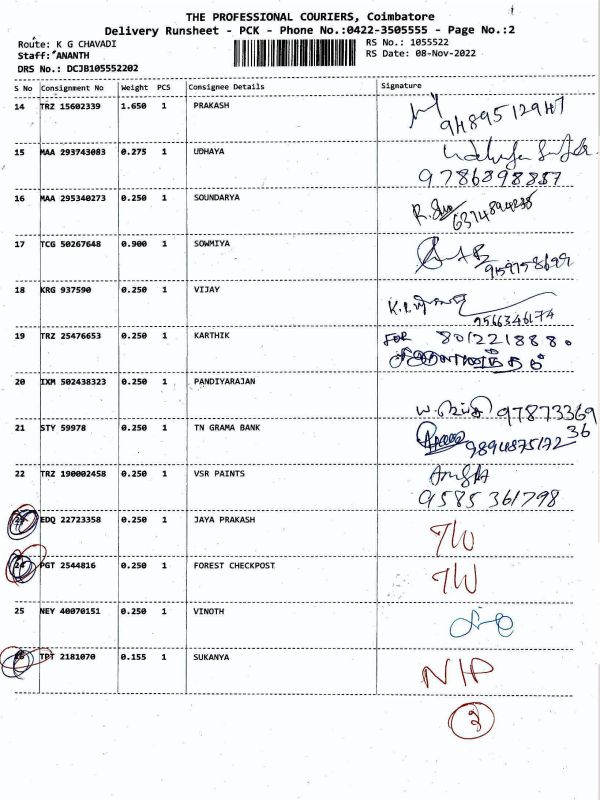 THE PROFESSIONAL COURIERS, Coimbatore
Delivery Runsheet - PCK - Phone No.:0422-3505555 - Page No.:2
Route: K G CHAVADI
Staff: ANANTH
DRS No.: DCJB105552202
RS No.: 1055522
RS Date: 08-Nov-2022
S No Consignment No Weight PCS Consignee Details Signature
14 TRZ 15602339 1.650 1 PRAKASH
9489512947
15 MAA 293743083 0.275 1 UDHAYA
9786898857
16 MAA 295340273 0.250 1 SOUNDARYA
17 TCG 50267648 0.900 1 SOWMIYA
18 KRG 937590 0.250 1 VIJAY
9566346174
19 TRZ 25476653 0.250 1 KARTHIK FOR 8012218880
20 IXM 502438323 0.250 1 PANDIYARAJAN
97873369
36
21 STY 59978 0.250 1 TN GRAMA BANK
22 TRZ 190002458 0.250 1 VSR PAINTS
9585 361798
EDQ 22723358 0.250 1 JAYA PRAKASH
24 PGT 2544816 0.250 1 FOREST CHECKPOST
25 NEY 40070151 0.250 1 VINOTH
TPT 2181070 0.155 1 SUKANYA
3